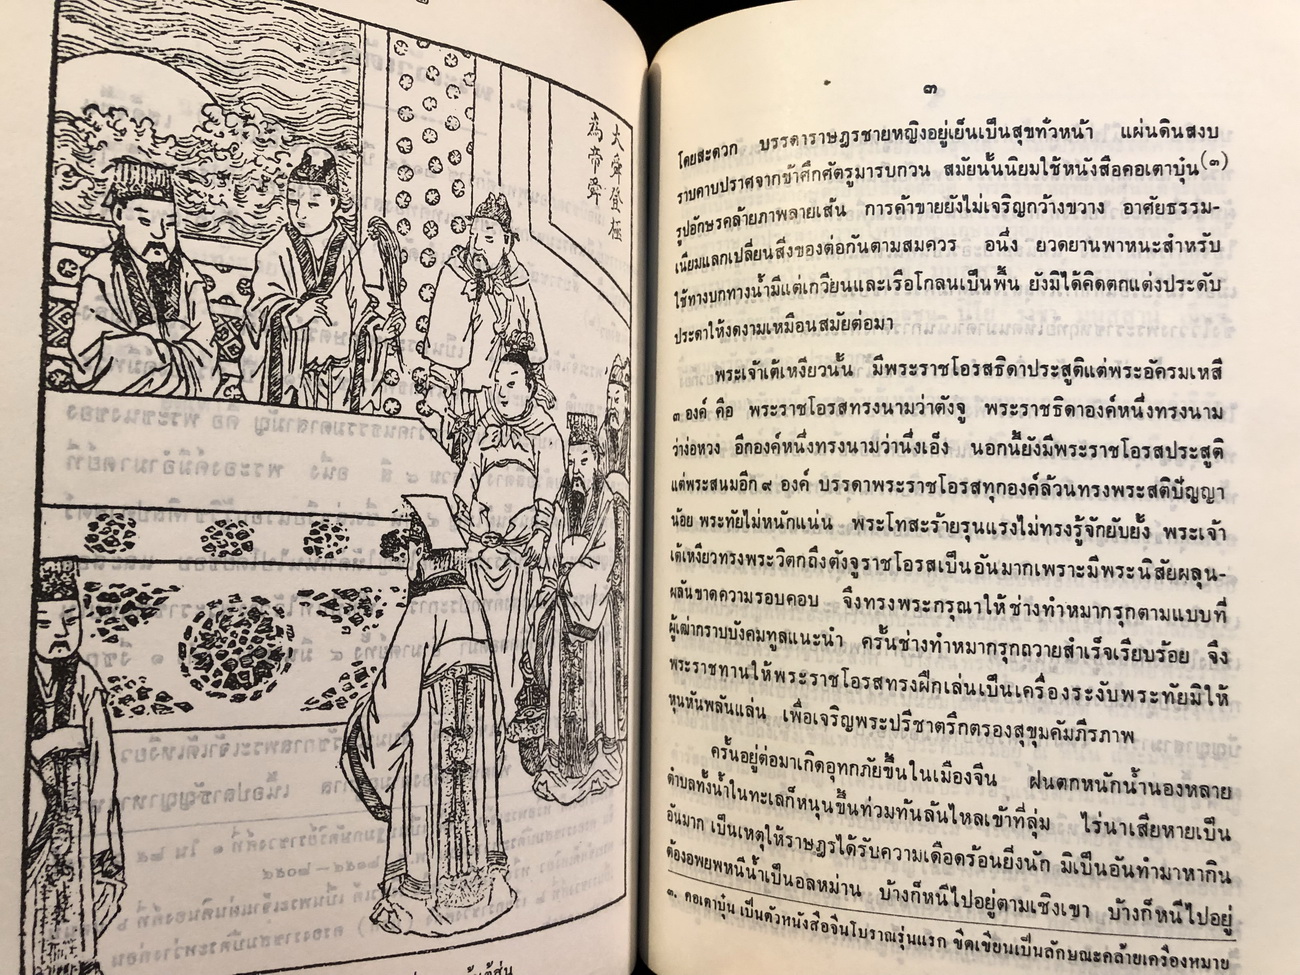 大舜登極
為帝舜
๓
โดยสะดวก บรรดาราษฎรชายหญิงอยู่เย็นเป็นสุขทั่วหน้า แผ่นดินสงบ
ราบคาบปราศจากข้าศึกศัตรูมารบกวน สมัยนั้นนิยมใช้หนังสือคอเตาบุ๋น(๓)
รูปอักษรคล้ายภาพลายเส้น การค้าขายยังไม่เจริญกว้างขวาง อาศัยธรรม-
เนียมแลกเปลี่ยนสิ่งของต่อกันตามสมควร อนึ่ง ยวดยานพาหนะสำหรับ
ใช้ทางบกทางน้ำมีแต่เกวียนและเรือโกลนเป็นพื้น ยังมิได้คิดตกแต่งประดับ
ประดาให้งดงามเหมือนสมัยต่อมา
พระเจ้าเต้เหงียวนั้น มีพระราชโอรสธิดาประสูติแต่พระอัครมเหสี
๓ องค์ คือ พระราชโอรสทรงนามว่าตังจู พระราชธิดาองค์หนึ่งทรงนาม
ว่าง่อหวง อีกองค์หนึ่งทรงนามว่านึ่งเอ็ง นอกนี้ยังมีพระราชโอรสประสูติ
แต่พระสนมอีก ๙ องค์ บรรดาพระราชโอรสทุกองค์ล้วนทรงพระสติปัญญา
น้อย พระทัยไม่หนักแน่น พระโทสะร้ายรุนแรงไม่ทรงรู้จักยับยั้ง พระเจ้า
เต้เหงียวทรงพระวิตกถึงตังจูราชโอรสเป็นอันมากเพราะมีพระนิสัยผลุน-
ผลันขาดความรอบคอบ จึงทรงพระกรุณาให้ช่างทำหมากรุกตามแบบที่
ผู้เฒ่ากราบบังคมทูลแนะนำ ครั้นช่างทำหมากรุกถวายสำเร็จเรียบร้อย จึง
พระราชทานให้พระราชโอรสทรงฝึกเล่นเป็นเครื่องระงับพระทัยมิให้
หุนหันพลันแล่น เพื่อเจริญพระปรีชาตรึกตรองสุขุมคัมภีรภาพ
ครั้นอยู่ต่อมาเกิดอุทกภัยขึ้นในเมืองจีน ฝนตกหนักน้ำนองหลาย
ตำบลทั้งน้ำในทะเลก็หนุนขึ้นท่วมทันลันไหลเข้าที่ลุ่ม ไร่นาเสียหายเป็น
อันมาก เป็นเหตุให้ราษฎรได้รับความเดือดร้อนยิ่งนัก มิเป็นอันทำมาหากิน
ต้องอพยพหนีน้ำเป็นอลหม่าน บ้างก็หนีไปอยู่ตามเชิงเขา บ้างก็หนีไปอยู่
๓. คอเตาบุ๋น เป็นตัวหนังสือจีนโบราณรุ่นแรก ขีดเขียนเป็นลักษณะคล้ายเครื่องหมาย